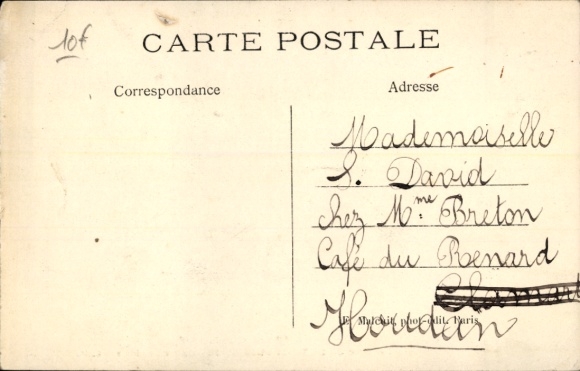 10f
CARTE POSTALE
Correspondance
Adresse
Mademoiselle
S. David
chez Mme Breton
Café du Renard
Clamart
Houdan
phot-édit. Paris